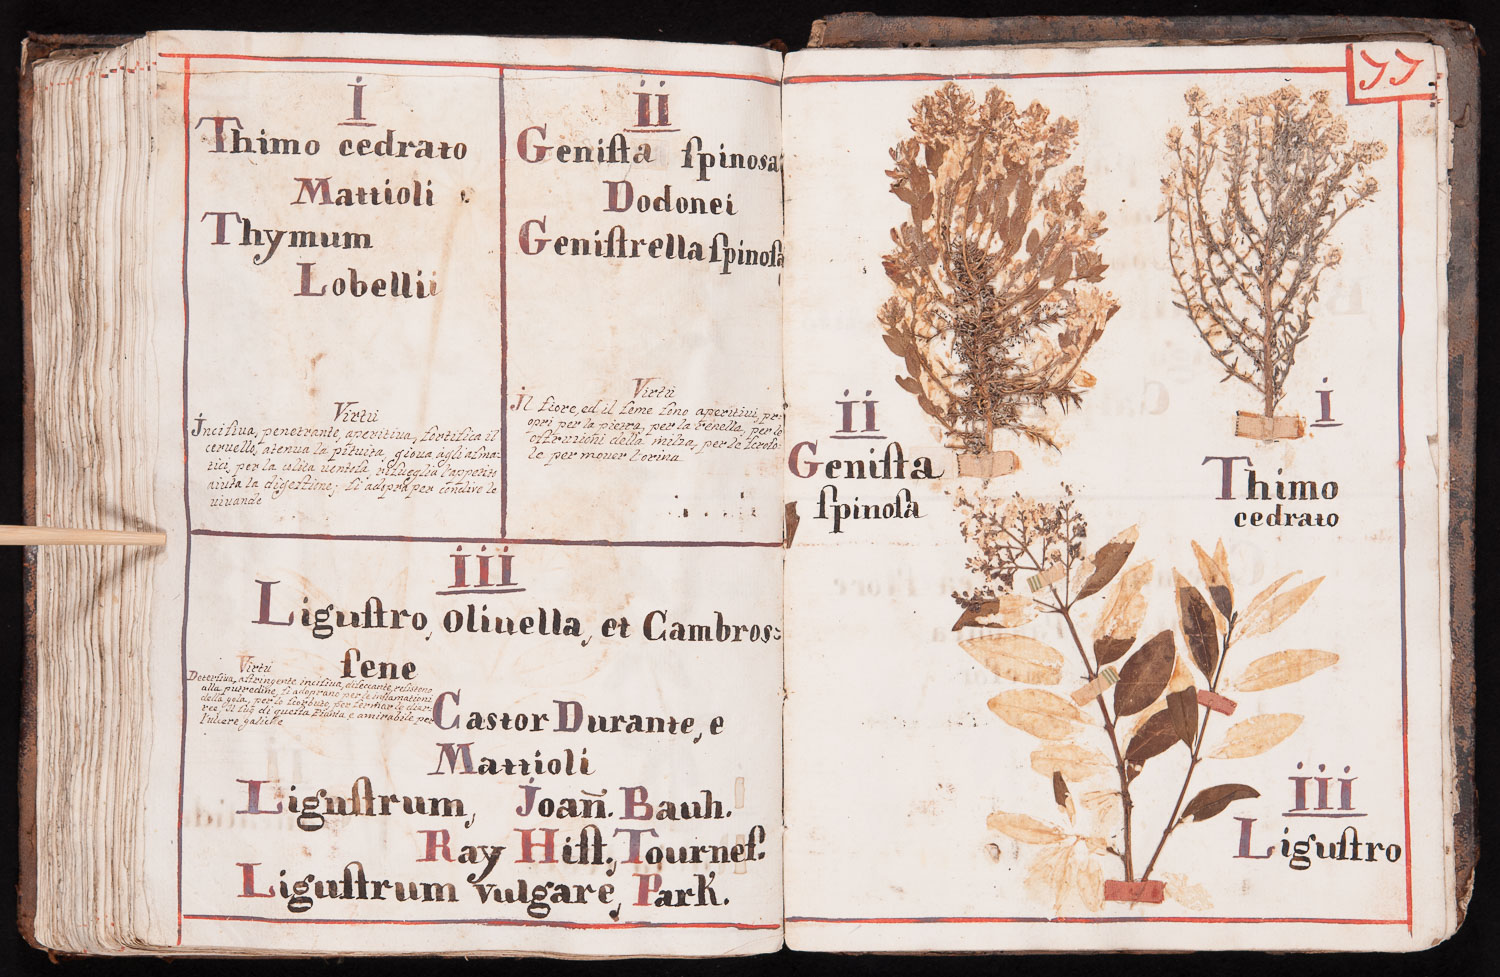 i
Thimo cedrato
Mattioli
Thymum
Lobellii
Virtù
Incisiua, penetrante, aperitiua, fortifica il
ceruello, atenua la pituita, gioua agli asma-
tici, per la colica uentosa, risueglia l'appetito
aiuta la digestione; si adopra per condire le
uiuande
ii
Geniſta ſpinosa
Dodonei
Geniſtrella ſpinoſa
Virtù
Il fiore, ed il seme sono aperitiui, pro
opri per la pietra, per la renella, per le
ostruzioni della milza, per le scrofo-
le per mouer l'orina
iii
Liguſtro, oliuella, et Cambros:
ſene
Virtù
Detersiua, astringente, incisiua, diseccante, resistono
alla putredine, si adoprano per le infiamationi
della gola, per lo scorbuto, per fermar le diar-
ree, Il di questa Pianta, e amirabile per
l'ulcere galiche
Castor Durante, e
Mattioli
Liguſtrum, Joañ. Bauh.
Ray Hiſt., Tourneſ.
Liguſtrum vulgare, Park.
77
ii
Geniſta
ſpinoſa
i
Thimo
cedrato
iii
Liguſtro